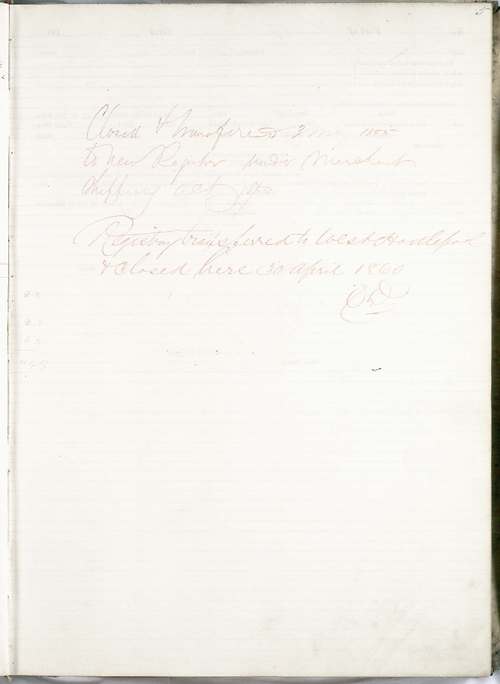 5
Closed & Transferred 2
to new Register under Merchant
Shipping Act
Registry transferred to West Hartlepool
& closed here 30 April 1860